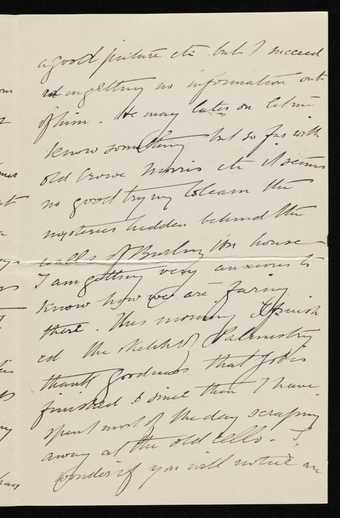 a good picture etc. but I succeed
in getting no information out
of him. He may later on let me
know something but so far with
old Crowe Morris etc it seems
no good trying to learn the
mysteries hidden behind the
walls of Burlington house —
I am getting very anxious to
know how we are faring
there. This morning I finish
ed the sketch of Palmistry
thank goodness that job is
finished & since then I have
spent most of the day scraping
away at the old cello. I
wonder if you will notice an